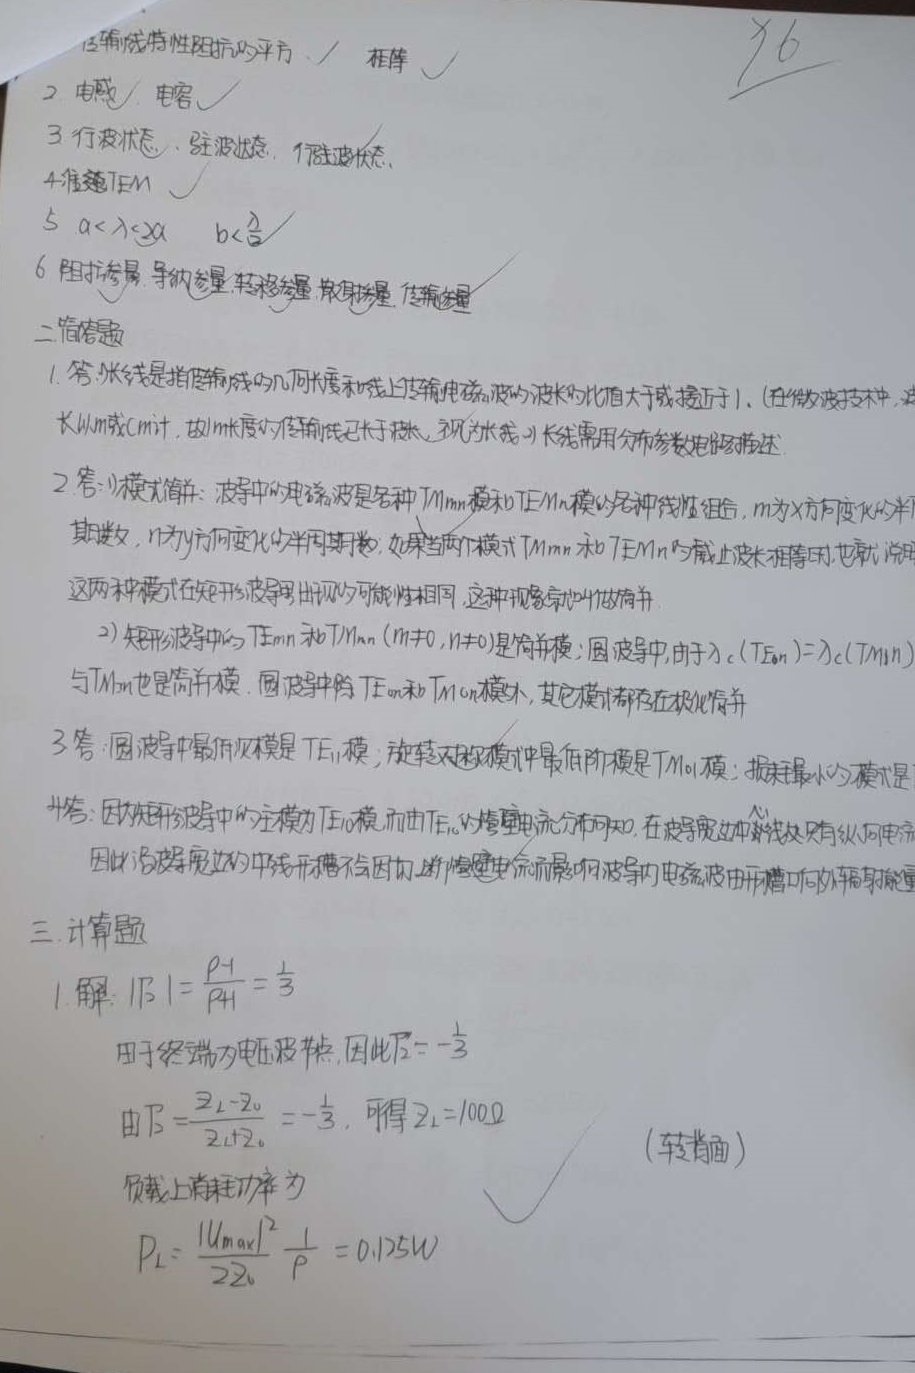 传输线特性阻抗的平方 相等
96
2. 电感 电容
3 行波状态、驻波状态、行驻波状态、
4 准TEM
5 a<λ<2a b<λ/2
6 阻抗参量、导纳参量、转移参量、散射参量、传输参量
二.简答题
1. 答:长线是指传输线的几何长度和线上传输电磁波的波长的比值大于或接近于1、(在微波技术中,波
长以m或cm计,故1m长度的传输线已长于波长、视为长线)长线需用分布参数电路描述.
2.答:1)模式简并:波导中的电磁波是各种TMmn模和TEMn模的各种线性组合,m为x方向变化的半周
期数,n为y方向变化的半周期数;如果当两个模式TMmn和TEMn的截止波长相等时,也就说明
这两种模式在矩形波导里出现的可能性相同,这种现象就叫做简并.
2)矩形波导中的TEmn和TMmn(m≠0,n≠0)是简并模;圆波导中,由于λc(TE0n)=λc(TM1n)
与TM1n也是简并模.圆波导中除TEon和TMon模外,其它模式都存在极化简并
3答:圆波导中最低次模是TE11模;旋转对称模式中最低阶模是TM01模;损耗最小的模式是
4答:因为矩形波导中的主模为TE10模,而由TE10的管壁电流分布可知,在波导宽边中心线处只有纵向电流
因此沿波导宽边的中线开槽不会因切断管壁电流而影响波导内电磁波由开槽口向外辐射能量
三.计算题
1.解:|Γ2|=ρ-1/ρ+1=1/3
由于终端为电压波节点,因此Γ2=-1/3
由Γ2=ZL-Z0/ZL+Z0=-1/3,可得ZL=100Ω
(转背面)
负载上消耗功率为
PL=|Umax|²/2Z0 1/ρ=0.125W